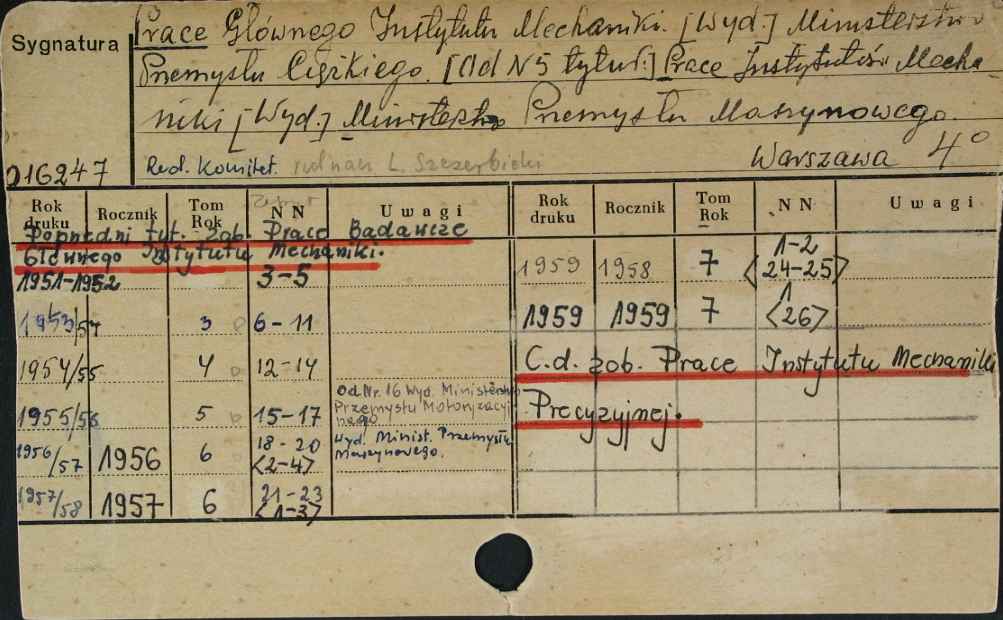 Sygnatura
Prace Głównego Instytutu Mechaniki. [Wyd.] Ministerstwo
Przemysłu Ciężkiego. [Od N 5 tytuł:] Prace Instytutów Mecha-
niki [Wyd.] Ministerstwo Przemysłu Maszynowego.
Warszawa 4°
016247 Red. Komitet. L. Szczerbicki
Rok druku Rocznik Tom Rok N N Uwagi Rok druku Rocznik Tom Rok N N Uwagi
Poprzedni tyt. zob. Prace Badawcze
Głównego Instytutu Mechaniki.
1951-1952 3-5
1953/54 3 6-11
1954/55 4 12-14
1955/56 5 15-17 Od Nr. 16 Wyd. Ministerstwo
Przemysłu Motoryzacyj
nego
1956/57 1956 6 18-20 <2-4> Wyd. Minist. Przemysłu
Maszynowego.
1957/58 1957 6 21-23 <1-3>
1959 1958 7 1-2 <24-25>
1959 1959 7 1 <26>
C.d. zob. Prace Instytutu Mechaniki
Precyzyjnej.